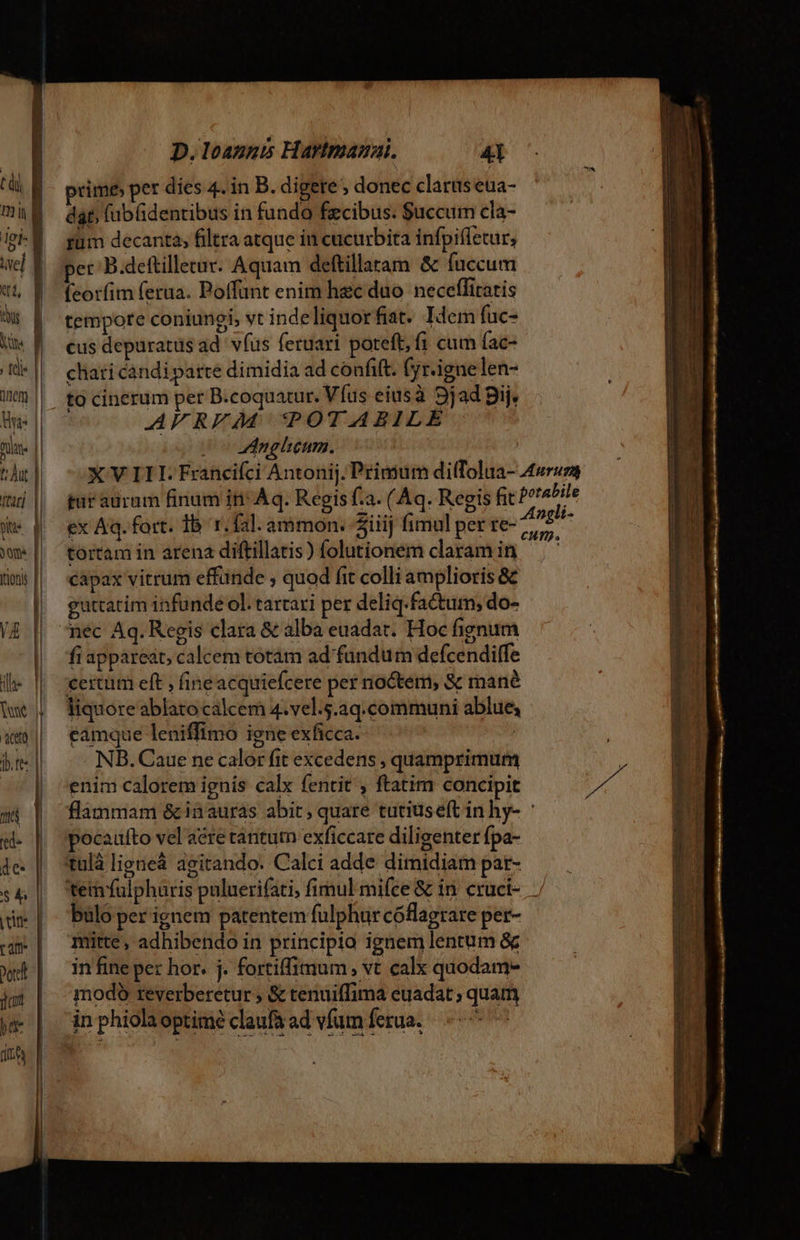 D. Ioannis Hartmanni. 41
prime, per dies 4. in B. digere, donec clarus eua-
dat, ſubſidentibus in fundo fæcibus. Succum cla-
rum decanta, filtra atque in cucurbita inſpiſſetur,
per B. deſtilletur. Aquam deſtillatam & ſuccum
ſeorſim ſerua. Poſſunt enim hæc duo neceſſitatis
tempore coniungi, vt inde liquor fiat. Idem ſuc-
cus depuratus ad vſus ſeruari poteſt, ſi cum ſac-
chari candi parte dimidia ad conſiſt. ſyr. igne len-
to cinerum per B. coquatur. Vſus eius à ℈j ad ℈ij.
AVRVM POTABILE
Anglicum.
XVIII. Franciſci Antonij. Primum diſſolua-
Aurum
potabile
Angli-
cum.
tur aurum finum in Aq. Regis ſ.a. (Aq. Regis fit
ex Aq. fort. ℔ 1. ſal. ammon. ℥iiij ſimul per re-
tortam in arena diſtillatis) ſolutionem claram in
capax vitrum effunde, quod ſit colli amplioris &
guttatim infunde ol. tartari per deliq. factum, do-
nec Aq. Regis clara & alba euadat. Hoc ſignum
ſi appareat, calcem totam ad fundum deſcendiſſe
certum eſt, ſine acquieſcere per noctem, & manè
liquore ablato calcem 4. vel. 5. aq. communi ablue,
eamque leniſſimo igne exſicca.
NB. Caue ne calor ſit excedens, quamprimum
enim calorem ignis calx ſentit, ſtatim concipit
flammam & in auras abit, quare tutius eſt in hy-
pocauſto vel aëre tantum exſiccare diligenter ſpa-
tulâ ligneâ agitando. Calci adde dimidiam par-
tem ſulphuris puluerifati, ſimul miſce & in cruci-
bulo per ignem patentem ſulphur cõflagrare per-
mitte, adhibendo in principio ignem lentum &
in fine per hor. j. fortiſſimum, vt calx quodam-
modò reverberetur, & tenuiſſima euadat, quam
in phiola optimè clauſa ad vſum ſerua.